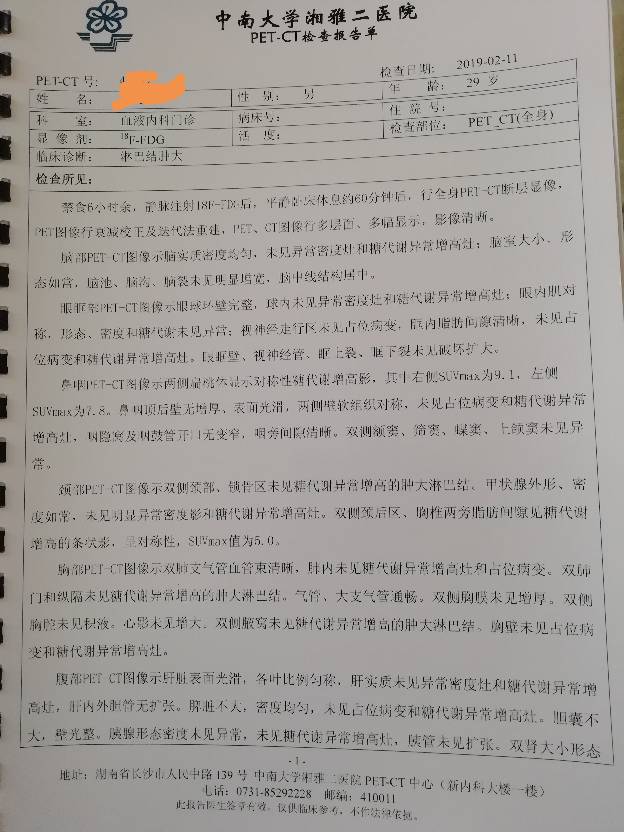 中南大学湘雅二医院
PET-CT检查报告单
PET-CT 号: 检查日期: 2019-02-11
姓 名: 性 别: 男 年 龄: 29 岁
科 室: 血液内科门诊 病床号: 住 院 号:
显 像 剂: ¹⁸F-FDG 活 度: 检查部位: PET_CT(全身)
临床诊断: 淋巴结肿大
检查所见:
禁食6小时余，静脉注射18F-FDG后，平静卧床休息约60分钟后，行全身PET-CT断层显像，
PET图像行衰减校正及迭代法重建，PET、CT图像行多层面、多幅显示，影像清晰。
脑部PET-CT图像示脑实质密度均匀，未见异常密度灶和糖代谢异常增高灶；脑室大小、形
态如常，脑池、脑沟、脑裂未见明显增宽，脑中线结构居中。
眼眶部PET-CT图像示眼球环壁完整，球内未见异常密度灶和糖代谢异常增高灶；眼内肌对
称，形态、密度和糖代谢未见异常；视神经走行区未见占位病变，眶内脂肪间隙清晰，未见占
位病变和糖代谢异常增高灶。眼眶壁、视神经管、眶上裂、眶下裂未见破坏扩大。
鼻咽PET-CT图像示两侧扁桃体显示对称性糖代谢增高影，其中右侧SUVmax为9.1，左侧
SUVmax为7.8。鼻咽顶后壁无增厚、表面光滑，两侧壁软组织对称，未见占位病变和糖代谢异常
增高灶，咽隐窝及咽鼓管开口无变窄，咽旁间隙清晰。双侧额窦、筛窦、蝶窦、上颌窦未见异
常。
颈部PET-CT图像示双侧颈部、锁骨区未见糖代谢异常增高的肿大淋巴结、甲状腺外形、密
度如常，未见明显异常密度影和糖代谢异常增高灶。双侧颈后区、胸椎两旁脂肪间隙见糖代谢
增高的条状影，呈对称性，SUVmax值为5.0。
胸部PET-CT图像示双肺支气管血管束清晰，肺内未见糖代谢异常增高灶和占位病变。双肺
门和纵隔未见糖代谢异常增高的肿大淋巴结。气管、大支气管通畅。双侧胸膜未见增厚。双侧
胸腔未见积液。心影未见增大。双侧腋窝未见糖代谢异常增高的肿大淋巴结。胸壁未见占位病
变和糖代谢异常增高灶。
腹部PET-CT图像示肝脏表面光滑，各叶比例匀称，肝实质未见异常密度灶和糖代谢异常增
高灶，肝内外胆管无扩张。脾脏不大，密度均匀，未见占位病变和糖代谢异常增高灶。胆囊不
大，壁光整。胰腺形态密度未见异常，未见糖代谢异常增高灶，胰管未见扩张。双肾大小形态
- 1 -
地址：湖南省长沙市人民中路 139 号 中南大学湘雅二医院 PET-CT 中心（新内科大楼一楼）
电话：0731-85292228 邮编：410011
此报告医生签章有效，仅供临床参考，不作法律依据。